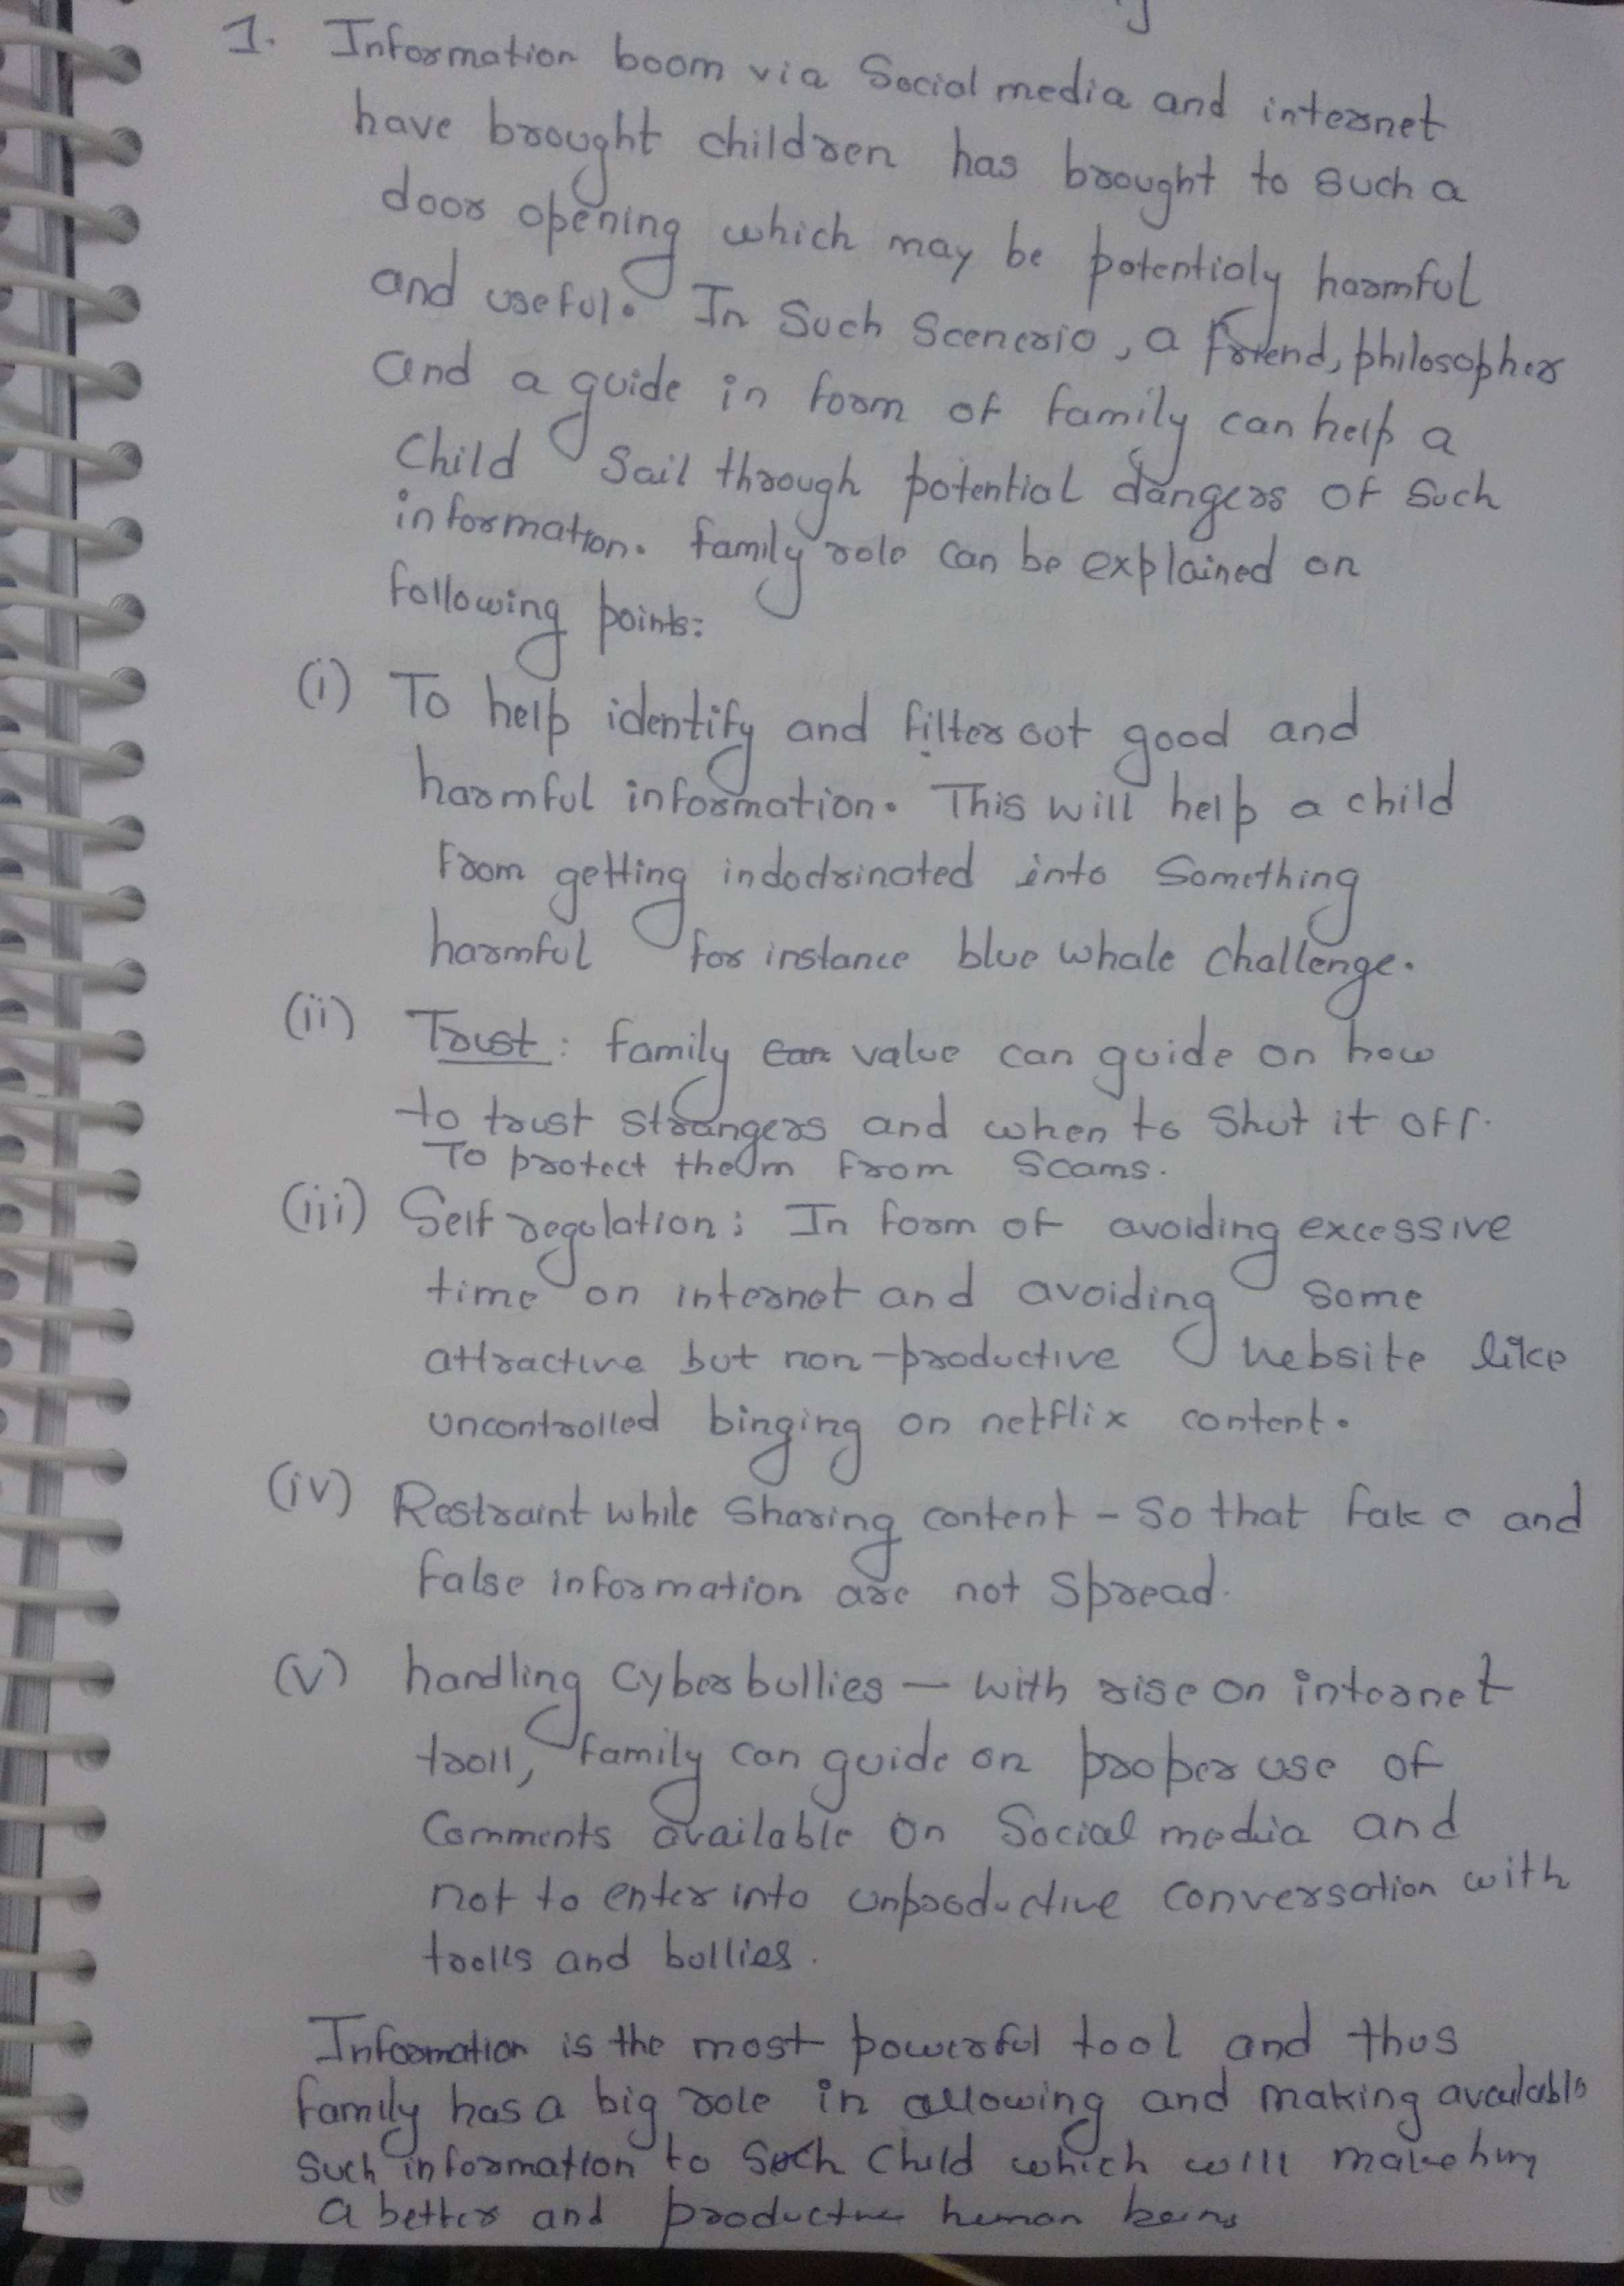 1. Information boom via Social media and internet
have brought children has brought to such a
door opening which may be potentialy harmful
and useful. In Such Scenerio, a friend, philosopher
and a guide in form of family can help a
Child Sail through potential dangers of Such
information. family role can be explained on
following points:
(i) To help identify and filter out good and
harmful information. This will help a child
from getting indoctrinated into Something
harmful for instance blue whale challenge.
(ii) Trust: family can value can guide on how
to trust strangers and when to Shut it off.
To protect them from Scams.
(iii) Self regulation: In form of avoiding excessive
time on internet and avoiding some
attractive but non-productive website like
uncontrolled binging on netflix content.
(iv) Restraint while Sharing content - So that fake and
false information are not Spread.
(v) handling Cyber bullies - With rise on internet
troll, family can guide on proper use of
Comments available on Social media and
not to enter into unproductive conversation with
trolls and bullies.
Information is the most powerful tool and thus
family has a big role in allowing and making available
such information to Such Child which will make him
a better and productive human being